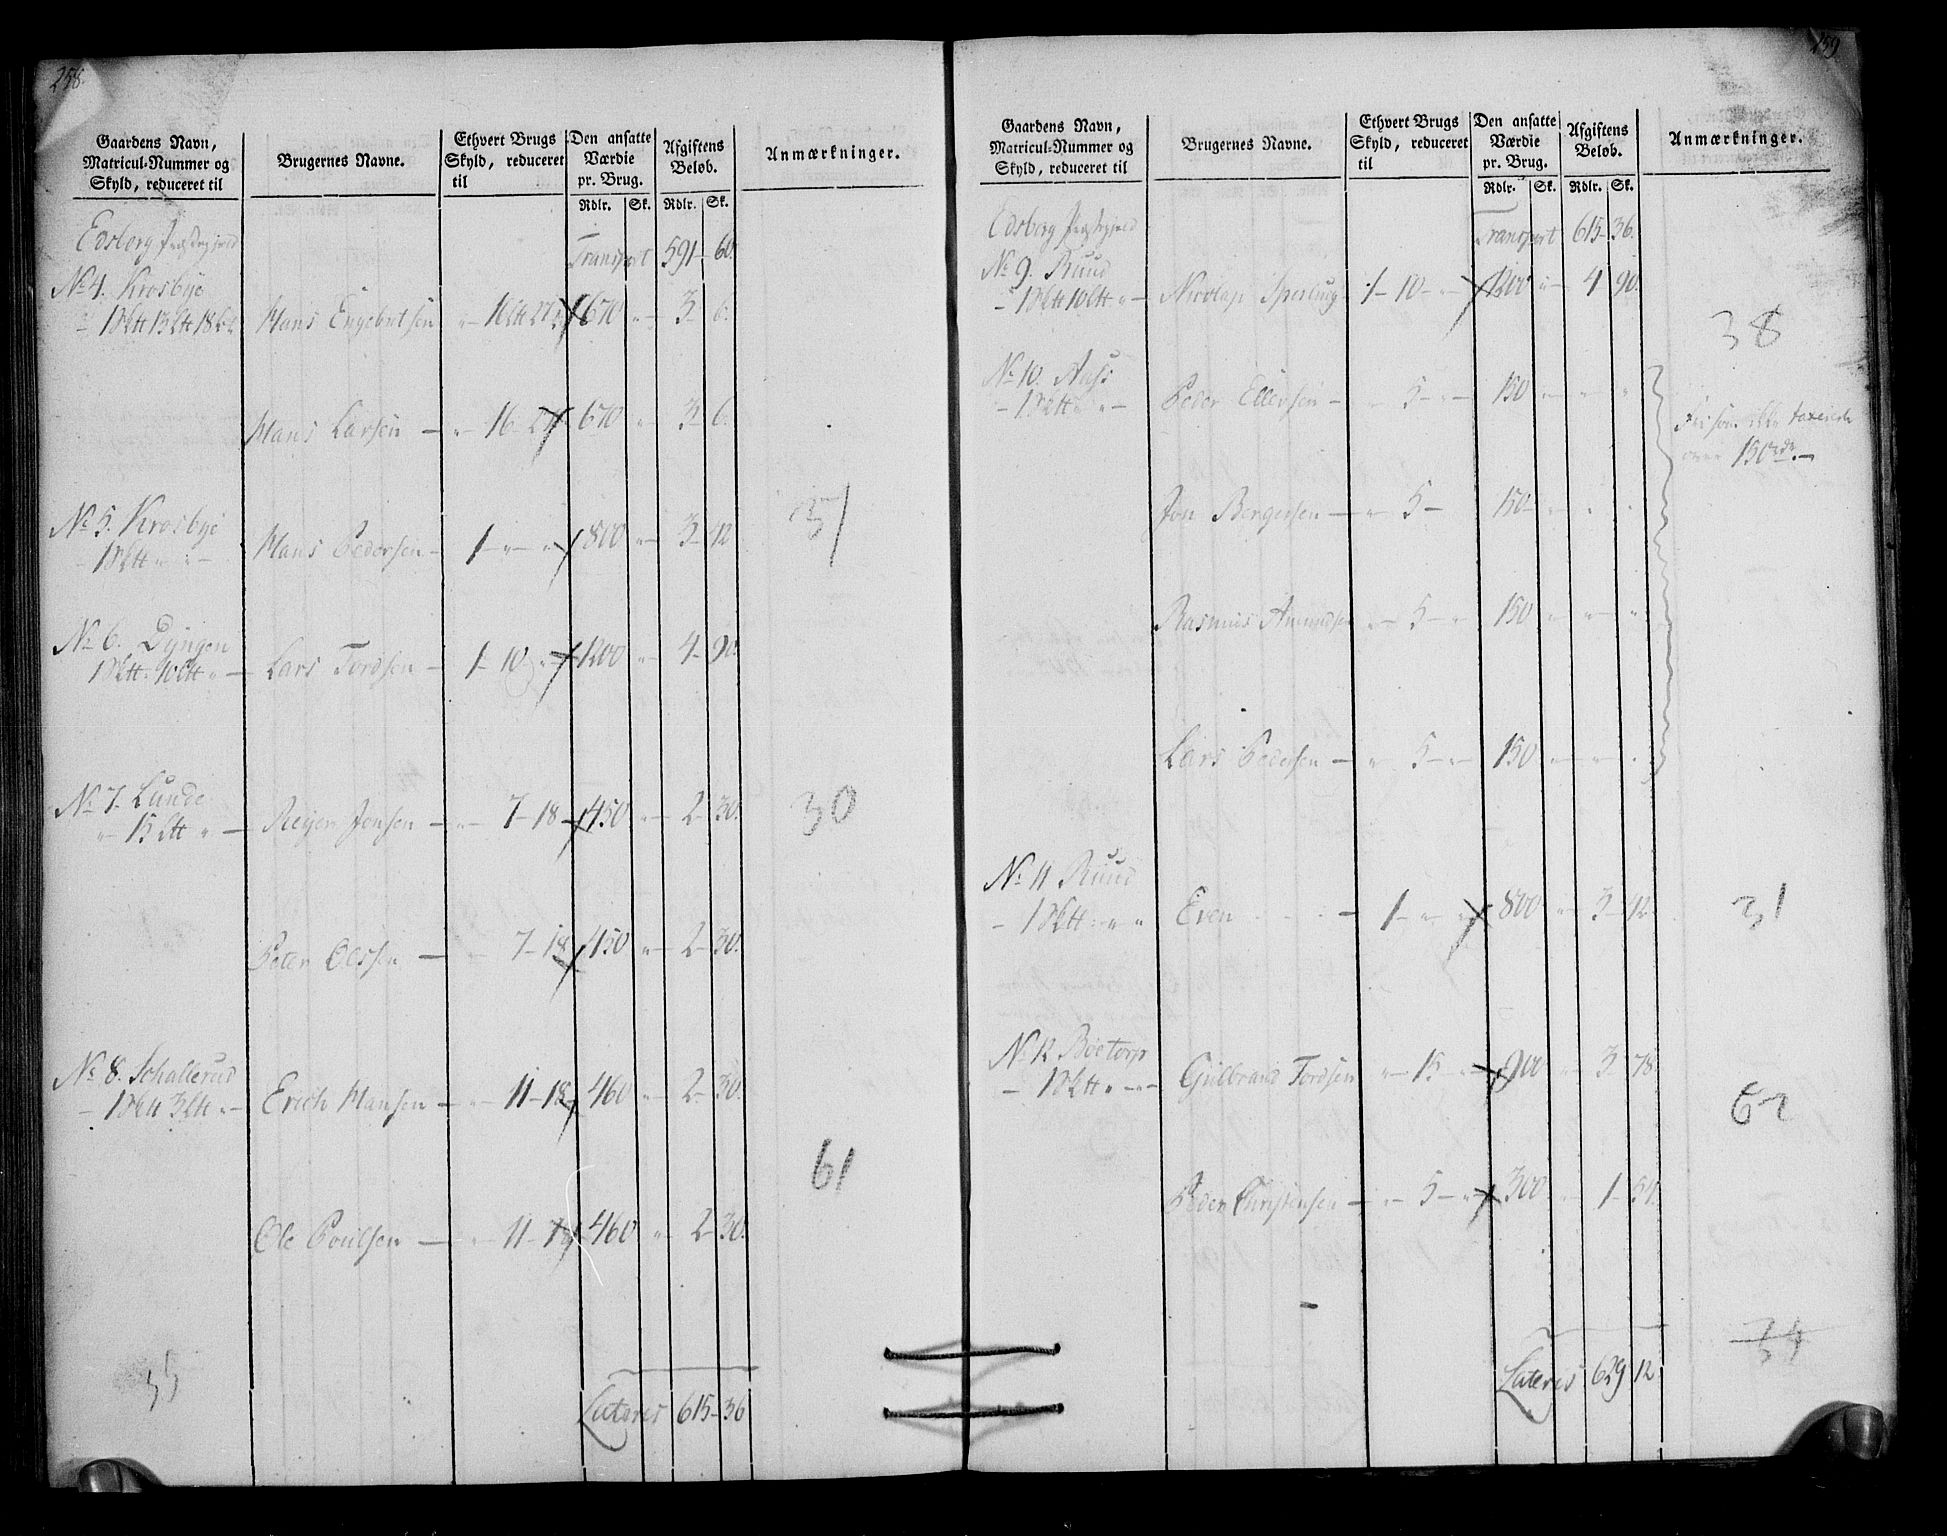 258.
Gaardens Navn, Matricul-Nummer og Skyld, reduceret til | Brugernes Navne. | Ethvert Brugs Skyld, reduceret til | Den ansatte Værdie pr. Brug. Rdlr. Sk. | Afgiftens Beløb. Rdlr. Sk. | Anmærkninger.
Edsberg Præstegjeld Transport 591 - 60.
No 4. Krosbye
Hans Engebretsen 670 " 3 - 6.
Hans Larsen - " 16 - 670 " 3 - 6.
No 5. Krosbye 31
Hans Pedersen - 1 - " - " 800 " 3 - 12
No 6. Dyngen
Lars Tordsen - 1 - 10 " 1200 " 4 - 90.
No 7. Lunde 30
" 15 Ltt " - Reyer Jonsen - " 7 - 18 - 450 " 2 - 30.
Peter Olssen - " 7 - 18 450 " 2 - 30.
No 8. Schallerud
Erich Hansen - " 11 - 18 460 " 2 - 30.
61
Ole Poulsen - " 11 - 18 460 " 2 - 30.
35
Lateris 615 - 36
259
Gaardens Navn, Matricul-Nummer og Skyld, reduceret til | Brugernes Navne. | Ethvert Brugs Skyld, reduceret til | Den ansatte Værdie pr. Brug. Rdlr. Sk. | Afgiftens Beløb. Rdlr. Sk. | Anmærkninger.
Edsberg Præstegjeld Transport 615 - 36.
No 9. Ruud
1 - 10 - " 1200 " 4 90.
38
No 10.
Peder Ellevsen - " 5 - " - 150 - " " "
Fri som ikke taxerede
over 150 rdr. -
Jon Bergersen - " 5 - 150 - " " "
Rasmus Amundsen " 5 - " 150 " " "
Lars Pedersen - " 5 - " 150 - " " "
No 11 Ruud
Even - 1 - " 800 " 3 - 12
31
No 12 Bøetorp
Gulbrand Tordsen " 15 - " 900 " 3 78.
62
Peder Christensen - " 5 - " 300 " 1 - 54.
34
Lateris 629 12.